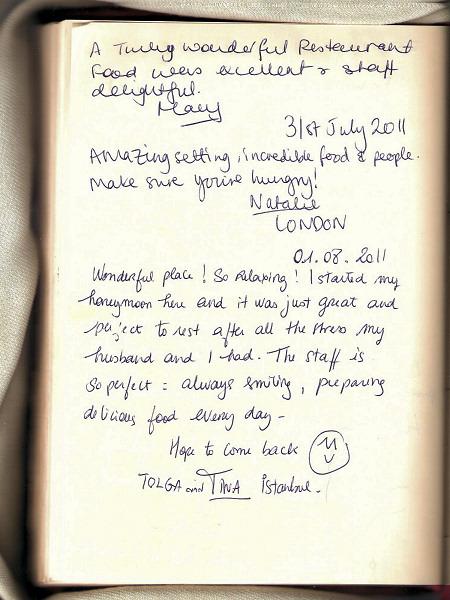 A Truly wonderful Restaurant
Food was excellent & staff
delightful.
Mary
31st July 2011
Amazing setting, incredible food & people.
Make sure you're hungry!
Natalie
LONDON
01.08.2011
Wonderful place! So relaxing! I started my
honeymoon here and it was just great and
perfect to rest after all the stress my
husband and I had. The staff is
so perfect = always smiling, preparing
delicious food every day -
Hope to come back
TOLGA and TINA İstanbul.